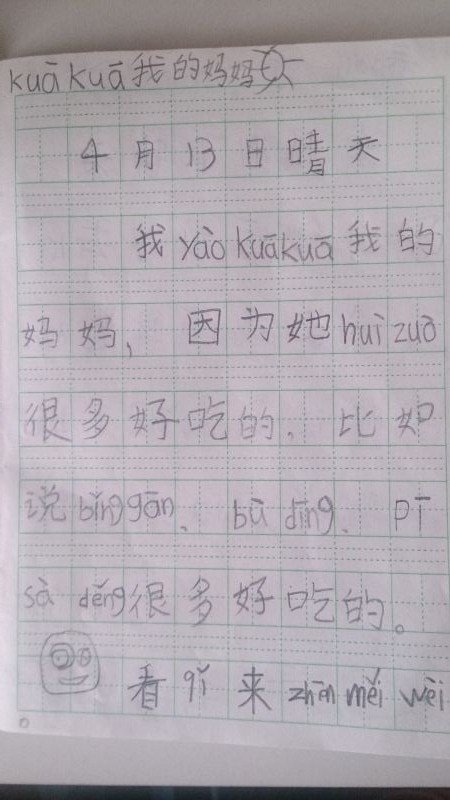 kuākuā我的妈妈
4月13日晴天
我yào kuākuā我的
妈妈，因为她huì zuò
很多好吃的，比如
说bǐnggān、bù dīng、pī
sà děng很多好吃的。
看qǐ来zhēn měi wèi